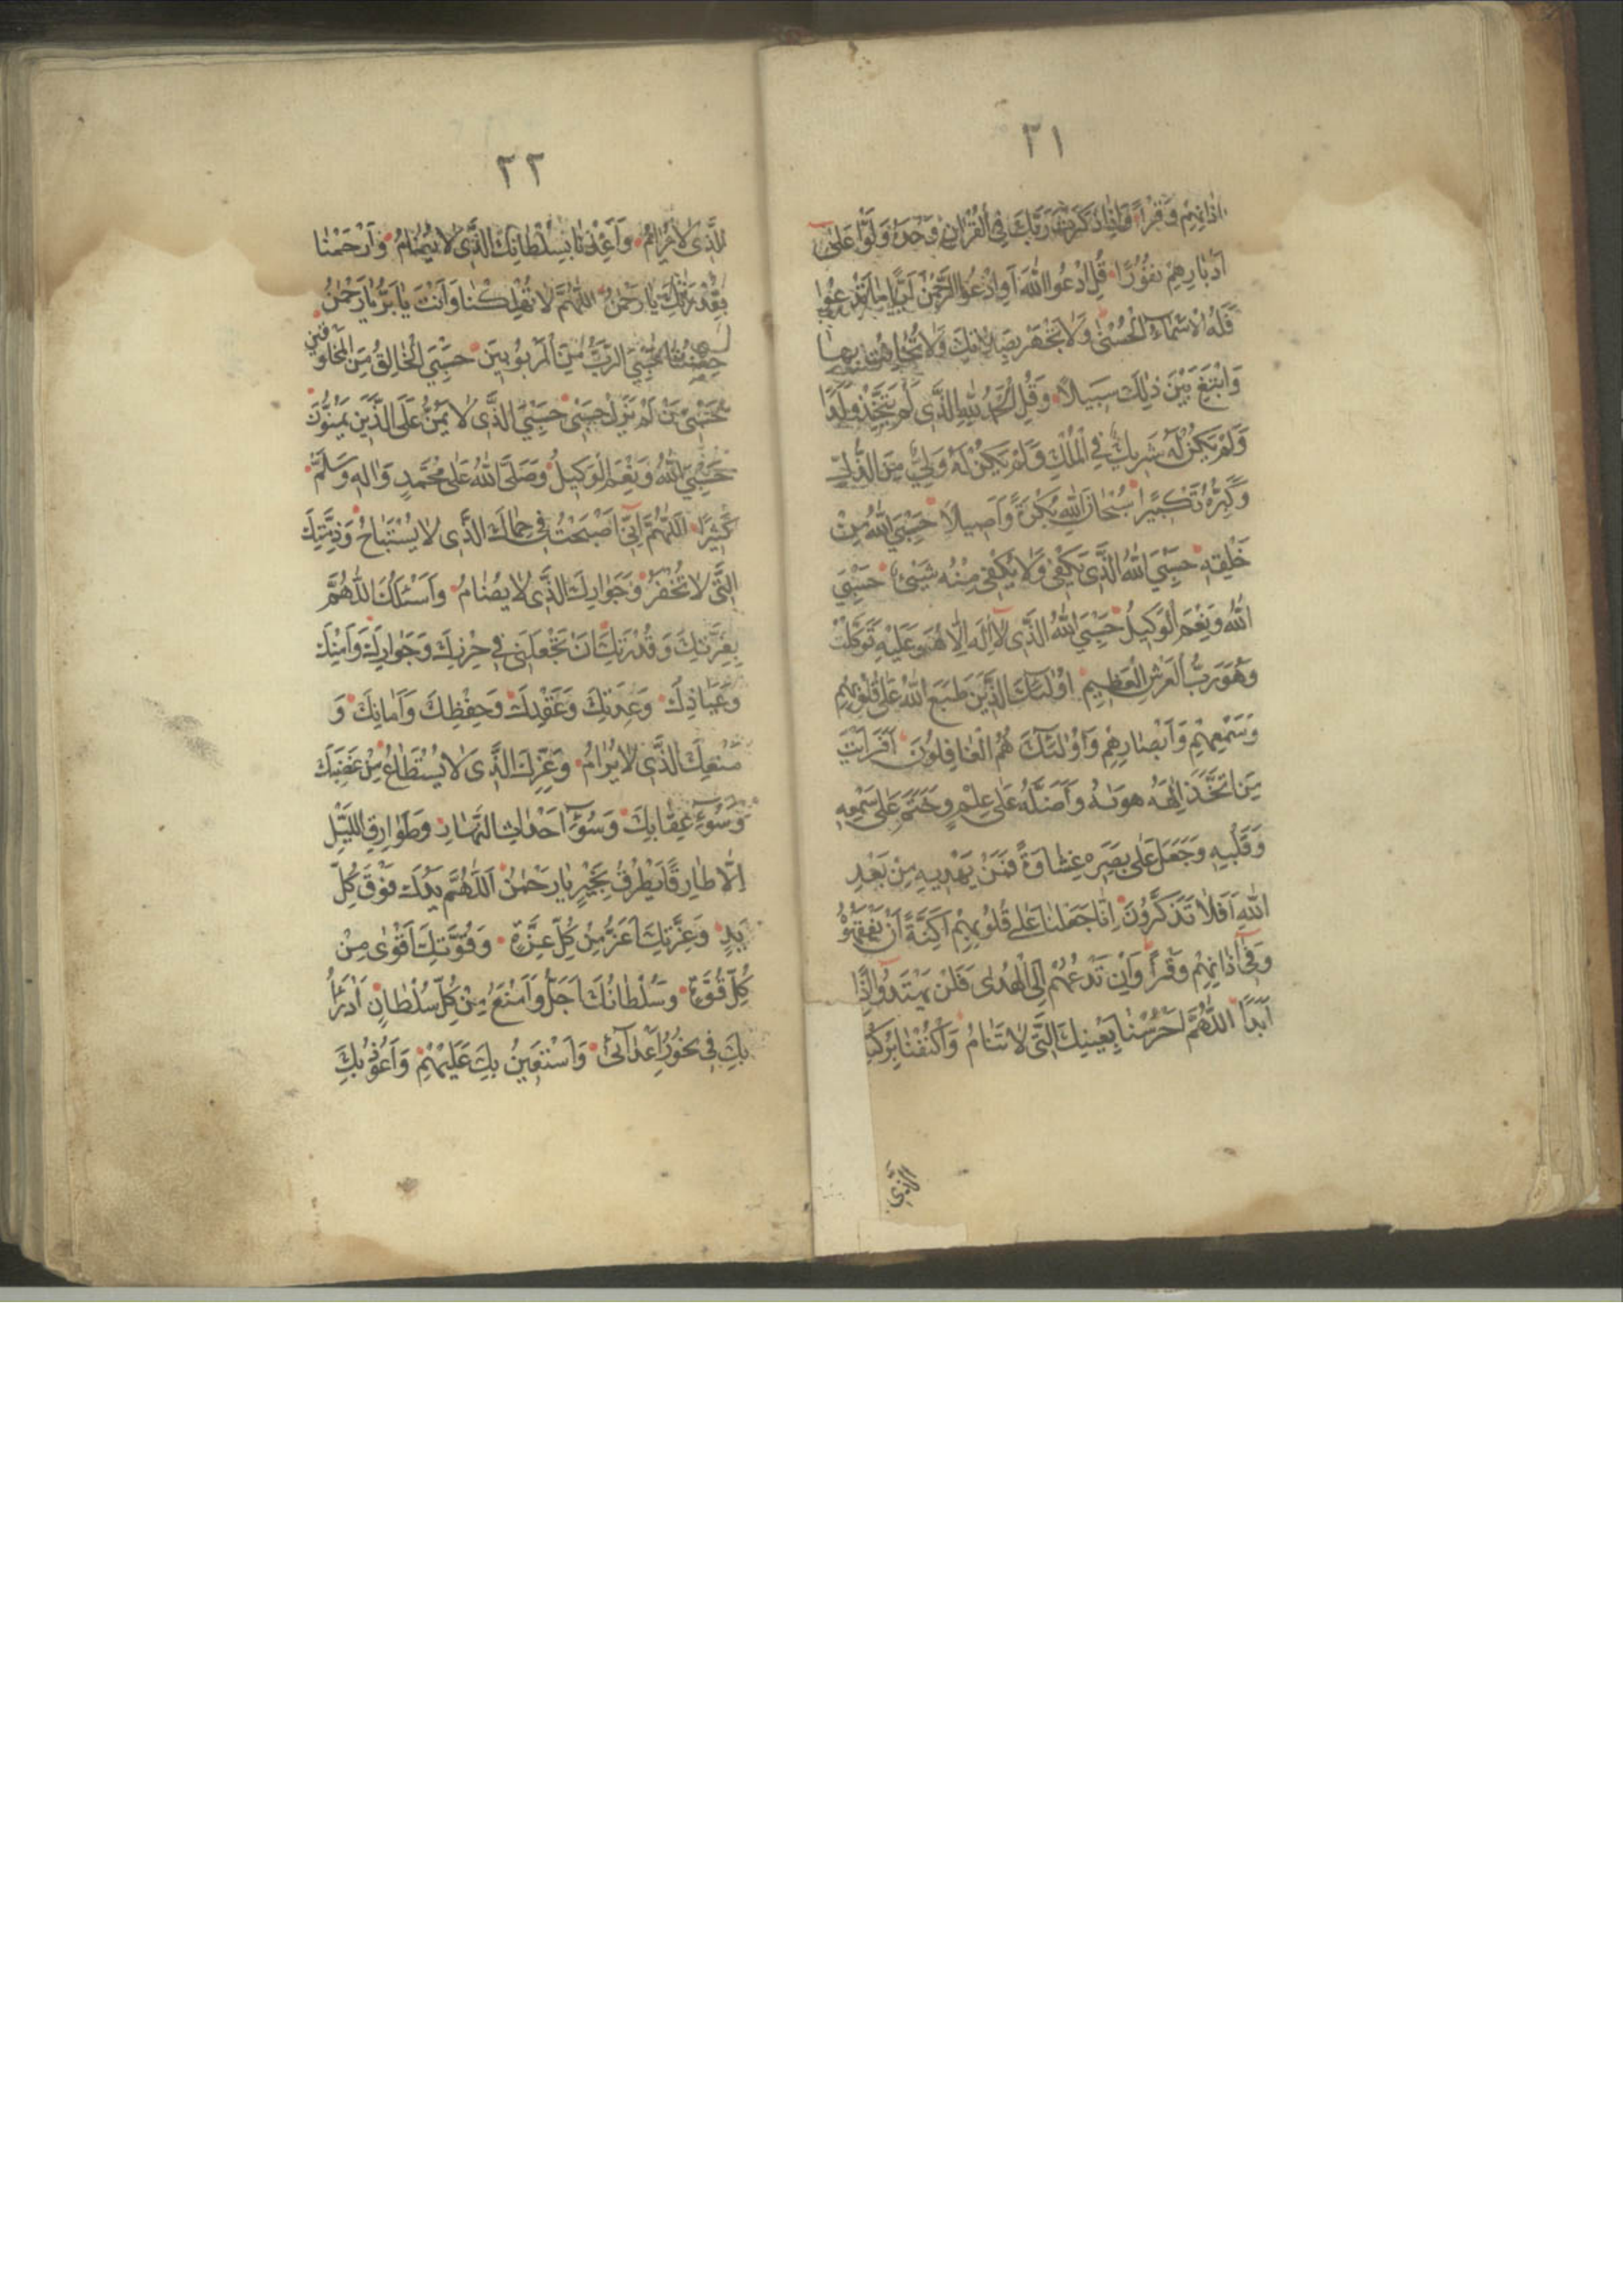 ٢١
اٰذانِهِمْ وَقْرًا وَاِذا ذَكَرْتَ رَبَّكَ فِى الْقُرْاٰنِ وَحْدَهُ وَلَّوْا عَلىٰ
اَدْبارِهِمْ نُفُورًا قُلِ ادْعُوا اللهَ اَوِ ادْعُوا الرَّحْمٰنَ اَيًّا ما تَدْعُوا
فَلَهُ الْاَسْماءُ الْحُسْنىٰ وَلا تَجْهَرْ بِصَلاتِكَ وَلا تُخافِتْ بِها
وَابْتَغِ بَيْنَ ذٰلِكَ سَبيلاً وَقُلِ الْحَمْدُ لِلّٰهِ الَّذى لَمْ يَتَّخِذْ وَلَدًا
وَلَمْ يَكُنْ لَهُ شَريكٌ فِى الْمُلْكِ وَلَمْ يَكُنْ لَهُ وَلِىٌّ مِنَ الذُّلِّ
وَكَبِّرْهُ تَكْبيرًا سُبْحانَ اللهِ بُكْرَةً وَاَصيلاً حَسْبِىَ اللهُ مِنْ
خَلْقِهِ حَسْبِىَ اللهُ الَّذى يَكْفى وَلا يَكْفى مِنْهُ شَيْئٌ حَسْبِىَ
اللهُ وَنِعْمَ الْوَكيلُ حَسْبِىَ اللهُ الَّذى لا اِلٰهَ اِلّا هُوَ عَلَيْهِ تَوَكَّلْتُ
وَهُوَ رَبُّ الْعَرْشِ الْعَظيمِ اُولٰئِكَ الَّذينَ طَبَعَ اللهُ عَلىٰ قُلُوبِهِمْ
وَسَمْعِهِمْ وَاَبْصارِهِمْ وَاُولٰئِكَ هُمُ الْغافِلُونَ اَفَرَاَيْتَ
مَنِ اتَّخَذَ اِلٰهَهُ هَوٰيهُ وَاَضَلَّهُ عَلىٰ عِلْمٍ وَخَتَمَ عَلىٰ سَمْعِهِ
وَقَلْبِهِ وَجَعَلَ عَلىٰ بَصَرِهِ غِشاوَةً فَمَنْ يَهْديهِ مِنْ بَعْدِ
اللهِ اَفَلا تَذَكَّرُونَ اِنّا جَعَلْنا عَلىٰ قُلُوبِهِمْ اَكِنَّةً اَنْ يَفْقَهُوهُ
وَفى اٰذانِهِمْ وَقْرًا وَاِنْ تَدْعُهُمْ اِلَى الْهُدىٰ فَلَنْ يَهْتَدُوا اِذًا
اَبَدًا اَللّٰهُمَّ احْرُسْنا بِعَيْنِكَ الَّتى لا تَنامُ وَاكْنُفْنا بِرُكْنِكَ
الَّذى
٢٢
الَّذى لا يُرامُ وَاَعِذْنا بِسُلْطانِكَ الَّذى لا يُضامُ وَارْحَمْنا
بِقُدْرَتِكَ يا رَحْمٰنُ اَللّٰهُمَّ لا تُهْلِكْنا وَاَنْتَ يا بَرُّ يا رَحْمٰنُ
حَسْبِىَ الرَّبُّ مِنَ الْمَرْبُوبينَ حَسْبِىَ الْخالِقُ مِنَ الْمَخْلُوقينَ
حَسْبى مَنْ لَمْ يَزَلْ حَسْبى حَسْبِىَ الَّذى لا يَمُنُّ عَلَى الَّذينَ يَمُنُّونَ
حَسْبِىَ اللهُ وَنِعْمَ الْوَكيلُ وَصَلَّى اللهُ عَلىٰ مُحَمَّدٍ وَاٰلِهِ وَسَلَّمَ
كَثيرًا اَللّٰهُمَّ اِنّى اَصْبَحْتُ فى حِماكَ الَّذى لا يُسْتَباحُ وَذِمَّتِكَ
الَّتى لا تُخْفَرُ وَجِوارِكَ الَّذى لا يُضامُ وَاَسْئَلُكَ اللّٰهُمَّ
بِعِزَّتِكَ وَقُدْرَتِكَ اَنْ تَجْعَلَنى فى حِرْزِكَ وَجِوارِكَ وَاَمْنِكَ
وَعِياذِكَ وَعِدَتِكَ وَعَقْدِكَ وَحِفْظِكَ وَاَمانِكَ وَ
مَنْعِكَ الَّذى لا يُرامُ وَعِزِّكَ الَّذى لا يُسْتَطاعُ مِنْ غَضَبِكَ
وَسُوءِ عِقابِكَ وَسُوءِ اَحْداثِ النَّهارِ وَطَوارِقِ اللَّيْلِ
اِلّا طارِقًا يَطْرُقُ بِخَيْرٍ يا رَحْمٰنُ اَللّٰهُمَّ يَدُكَ فَوْقَ كُلِّ
يَدٍ وَعِزَّتُكَ اَعَزُّ مِنْ كُلِّ عِزَّةٍ وَقُوَّتُكَ اَقْوىٰ مِنْ
كُلِّ قُوَّةٍ وَسُلْطانُكَ اَجَلُّ وَاَمْنَعُ مِنْ كُلِّ سُلْطانٍ اَدْرَءُ
بِكَ فى نُحُورِ اَعْدآئى وَاَسْتَعينُ بِكَ عَلَيْهِمْ وَاَعُوذُ بِكَ